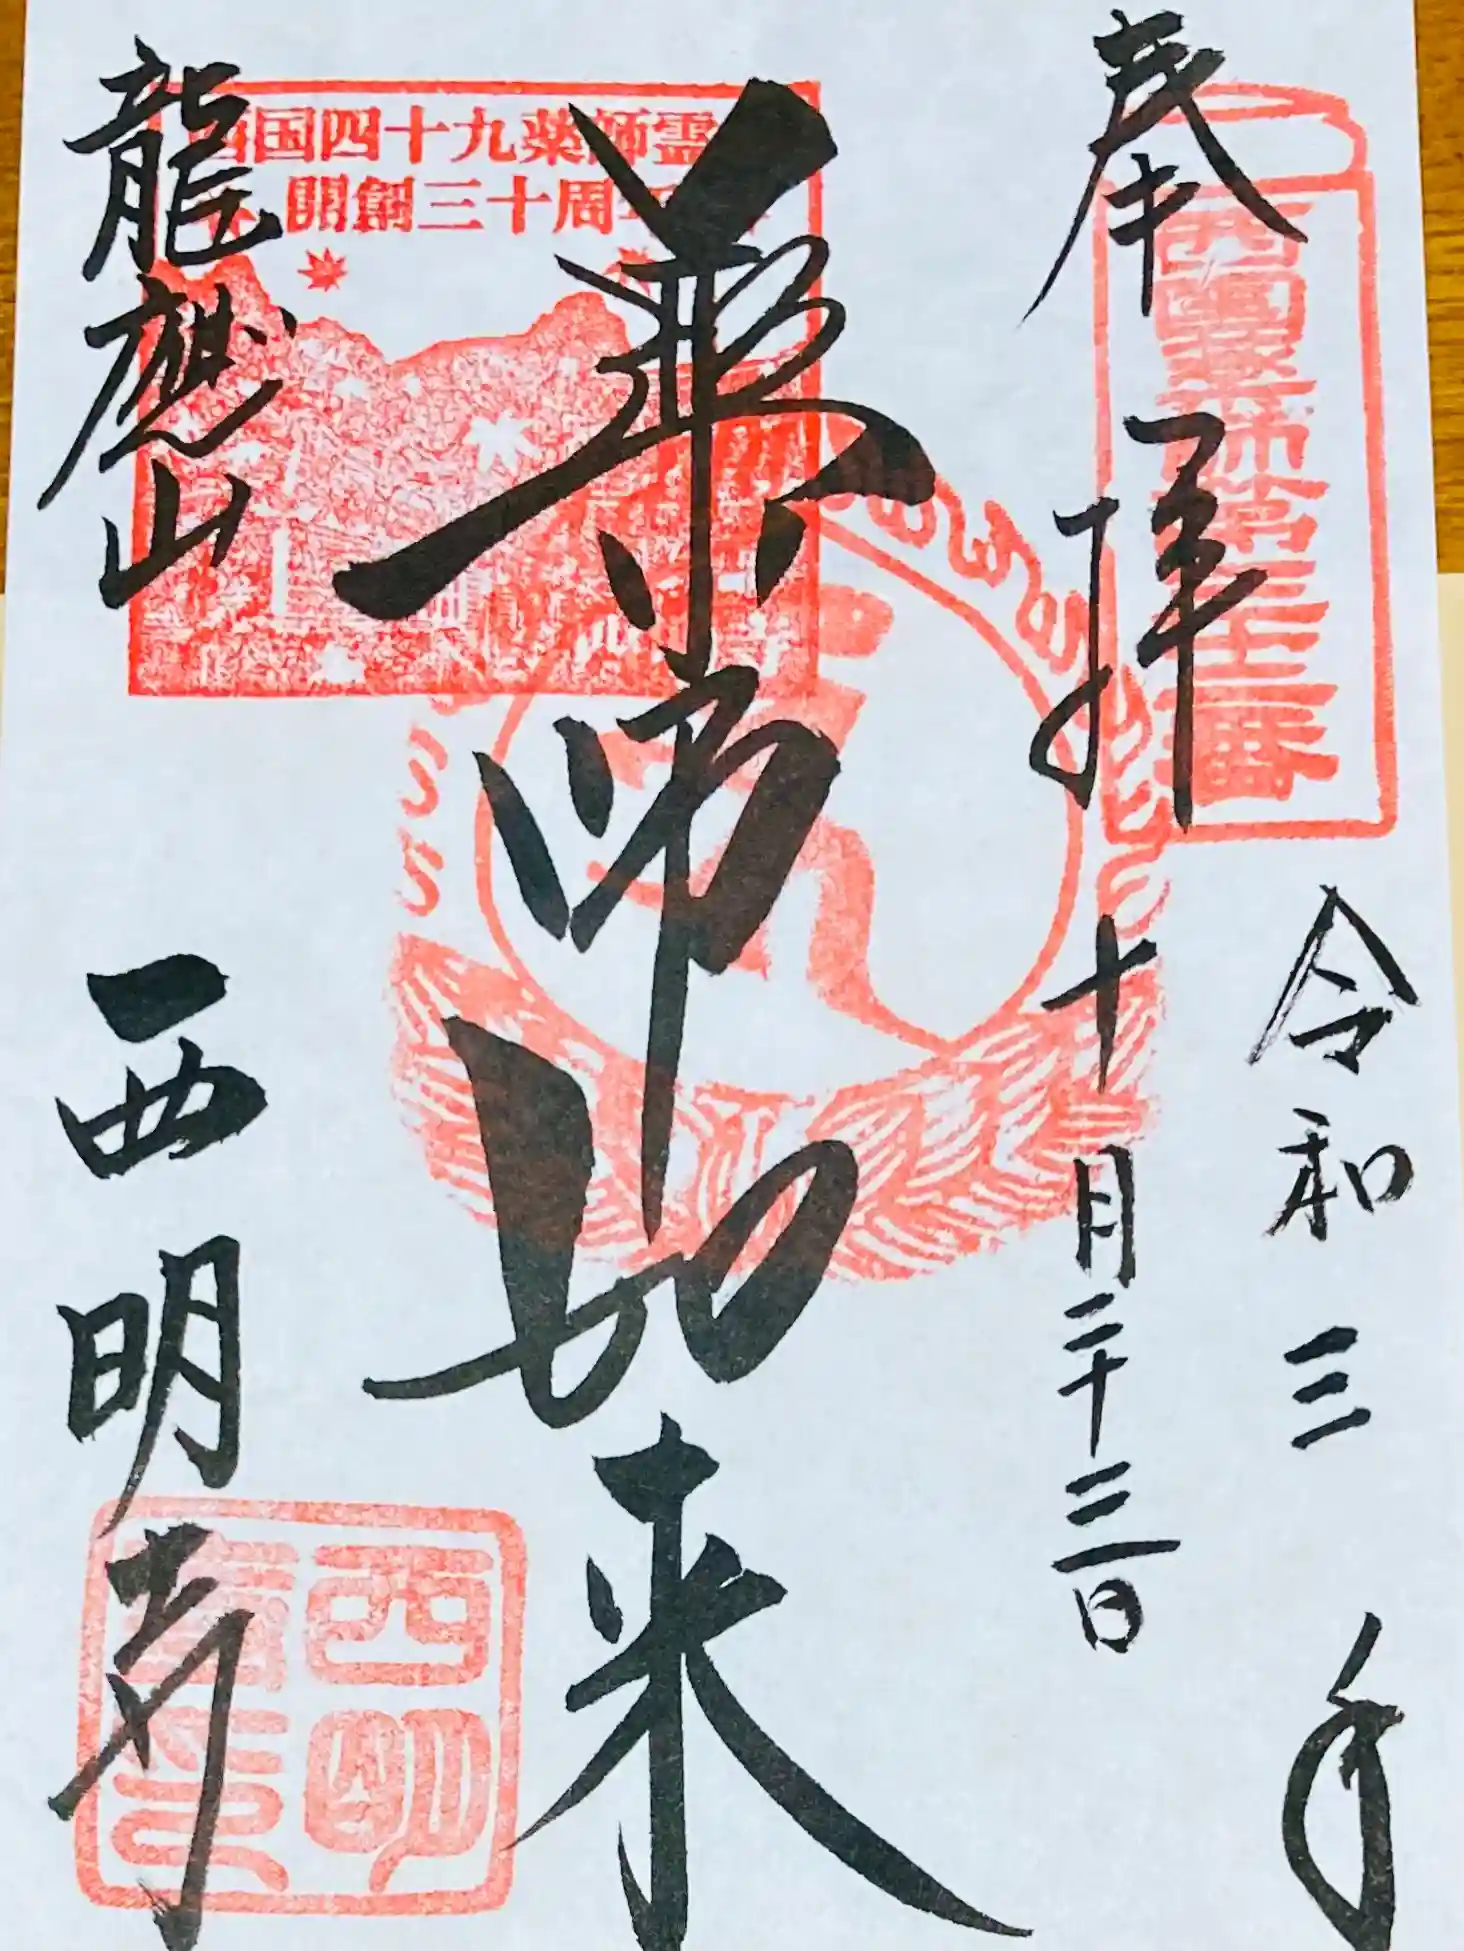 奉拝
令和三年
十月二十三日
西國薬師第三十二番
薬師如来
西国四十九薬師霊
開創三十周年
龍應山
西明寺
西明